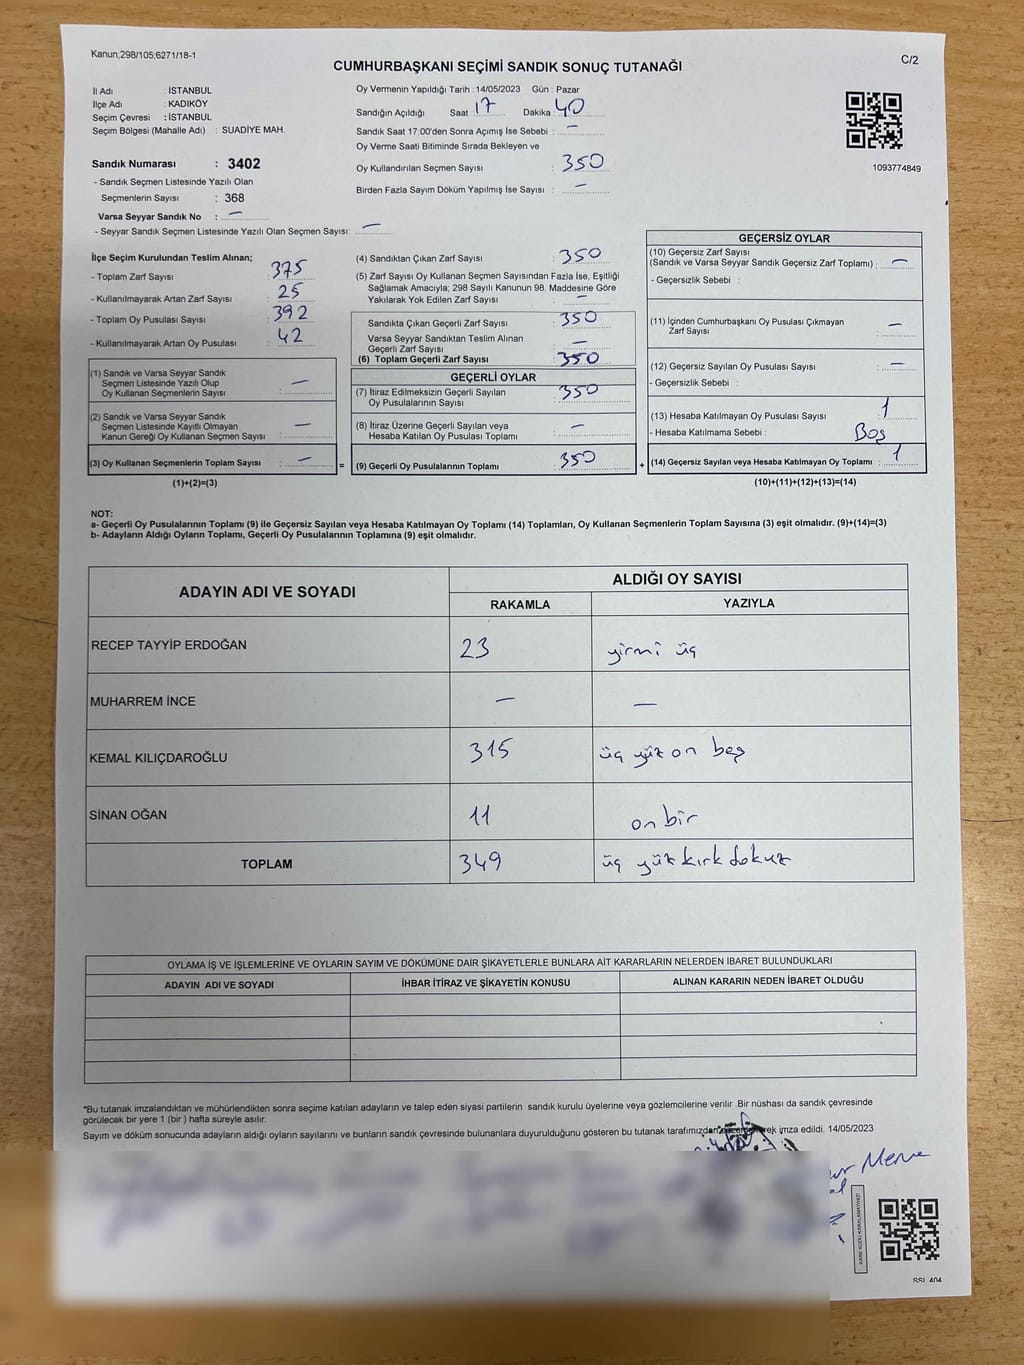 Kanun;298/105;6271/18-1
C/2
CUMHURBAŞKANI SEÇİMİ SANDIK SONUÇ TUTANAĞI
İl Adı : İSTANBUL
İlçe Adı : KADIKÖY
Seçim Çevresi : İSTANBUL
Seçim Bölgesi (Mahalle Adı) : SUADİYE MAH.
Sandık Numarası : 3402
- Sandık Seçmen Listesinde Yazılı Olan
Seçmenlerin Sayısı : 368
Varsa Seyyar Sandık No : —
- Seyyar Sandık Seçmen Listesinde Yazılı Olan Seçmen Sayısı: —
Oy Vermenin Yapıldığı Tarih : 14/05/2023 Gün : Pazar
Sandığın Açıldığı Saat 17 Dakika 40
Sandık Saat 17:00'den Sonra Açımış İse Sebebi : —
Oy Verme Saati Bitiminde Sırada Bekleyen ve
Oy Kullandırılan Seçmen Sayısı : 350
Birden Fazla Sayım Döküm Yapılmış İse Sayısı : —
1093774849
İlçe Seçim Kurulundan Teslim Alınan;
- Toplam Zarf Sayısı : 375
- Kullanılmayarak Artan Zarf Sayısı : 25
- Toplam Oy Pusulası Sayısı : 392
- Kullanılmayarak Artan Oy Pusulası : 42
(1) Sandık ve Varsa Seyyar Sandık
Seçmen Listesinde Yazılı Olup
Oy Kullanan Seçmenlerin Sayısı : —
(2) Sandık ve Varsa Seyyar Sandık
Seçmen Listesinde Kayıtlı Olmayan
Kanun Gereği Oy Kullanan Seçmen Sayısı : —
(3) Oy Kullanan Seçmenlerin Toplam Sayısı : —
(1)+(2)=(3)
(4) Sandıktan Çıkan Zarf Sayısı : 350
(5) Zarf Sayısı Oy Kullanan Seçmen Sayısından Fazla İse, Eşitliği
Sağlamak Amacıyla; 298 Sayılı Kanunun 98. Maddesine Göre
Yakılarak Yok Edilen Zarf Sayısı : —
Sandıkta Çıkan Geçerli Zarf Sayısı : 350
Varsa Seyyar Sandıktan Teslim Alınan
Geçerli Zarf Sayısı : —
(6) Toplam Geçerli Zarf Sayısı : 350
GEÇERLİ OYLAR
(7) İtiraz Edilmeksizin Geçerli Sayılan
Oy Pusulalarının Sayısı : 350
(8) İtiraz Üzerine Geçerli Sayılan veya
Hesaba Katılan Oy Pusulası Toplamı : —
= (9) Geçerli Oy Pusulalarının Toplamı : 350 +
GEÇERSİZ OYLAR
(10) Geçersiz Zarf Sayısı
(Sandık ve Varsa Seyyar Sandık Geçersiz Zarf Toplamı) : —
- Geçersizlik Sebebi :
(11) İçinden Cumhurbaşkanı Oy Pusulası Çıkmayan
Zarf Sayısı : —
(12) Geçersiz Sayılan Oy Pusulası Sayısı : —
- Geçersizlik Sebebi :
(13) Hesaba Katılmayan Oy Pusulası Sayısı : 1
- Hesaba Katılmama Sebebi : Boş
(14) Geçersiz Sayılan veya Hesaba Katılmayan Oy Toplamı : 1
(10)+(11)+(12)+(13)=(14)
NOT:
a- Geçerli Oy Pusulalarının Toplamı (9) ile Geçersiz Sayılan veya Hesaba Katılmayan Oy Toplamı (14) Toplamları, Oy Kullanan Seçmenlerin Toplam Sayısına (3) eşit olmalıdır. (9)+(14)=(3)
b- Adayların Aldığı Oyların Toplamı, Geçerli Oy Pusulalarının Toplamına (9) eşit olmalıdır.
ADAYIN ADI VE SOYADI
ALDIĞI OY SAYISI
RAKAMLA YAZIYLA
RECEP TAYYİP ERDOĞAN 23 yirmi üç
MUHARREM İNCE — —
KEMAL KILIÇDAROĞLU 315 üç yüz on beş
SİNAN OĞAN 11 on bir
TOPLAM 349 üç yüz kırk dokuz
OYLAMA İŞ VE İŞLEMLERİNE VE OYLARIN SAYIM VE DÖKÜMÜNE DAİR ŞİKAYETLERLE BUNLARA AİT KARARLARIN NELERDEN İBARET BULUNDUKLARI
ADAYIN ADI VE SOYADI İHBAR İTİRAZ VE ŞİKAYETİN KONUSU ALINAN KARARIN NEDEN İBARET OLDUĞU
*Bu tutanak imzalandıktan ve mühürlendikten sonra seçime katılan adayların ve talep eden siyasi partilerin sandık kurulu üyelerine veya gözlemcilerine verilir .Bir nüshası da sandık çevresinde
görülecek bir yere 1 (bir ) hafta süreyle asılır.
Sayım ve döküm sonucunda adayların aldığı oyların sayılarını ve bunların sandık çevresinde bulunanlara duyurulduğunu gösteren bu tutanak tarafımızdan imza edildi. 14/05/2023
Merve
KARE KODU KARALAMAYINIZ!